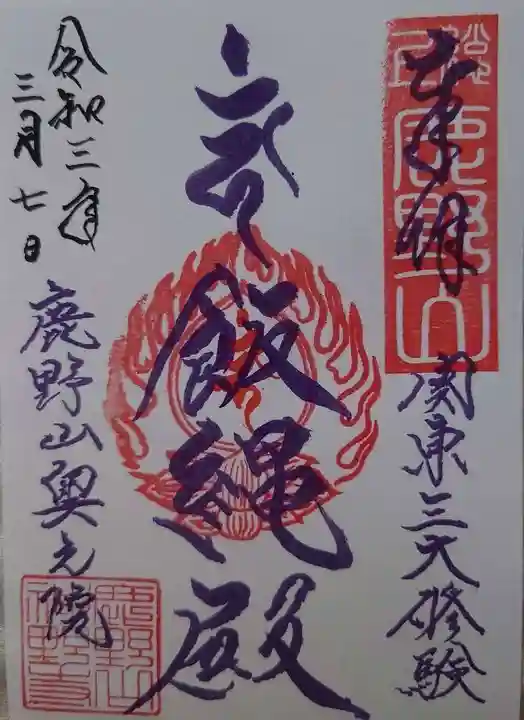 奉拝
関東三大修験
飯縄殿
令和三年
三月七日
鹿野山奥之院
鹿野山